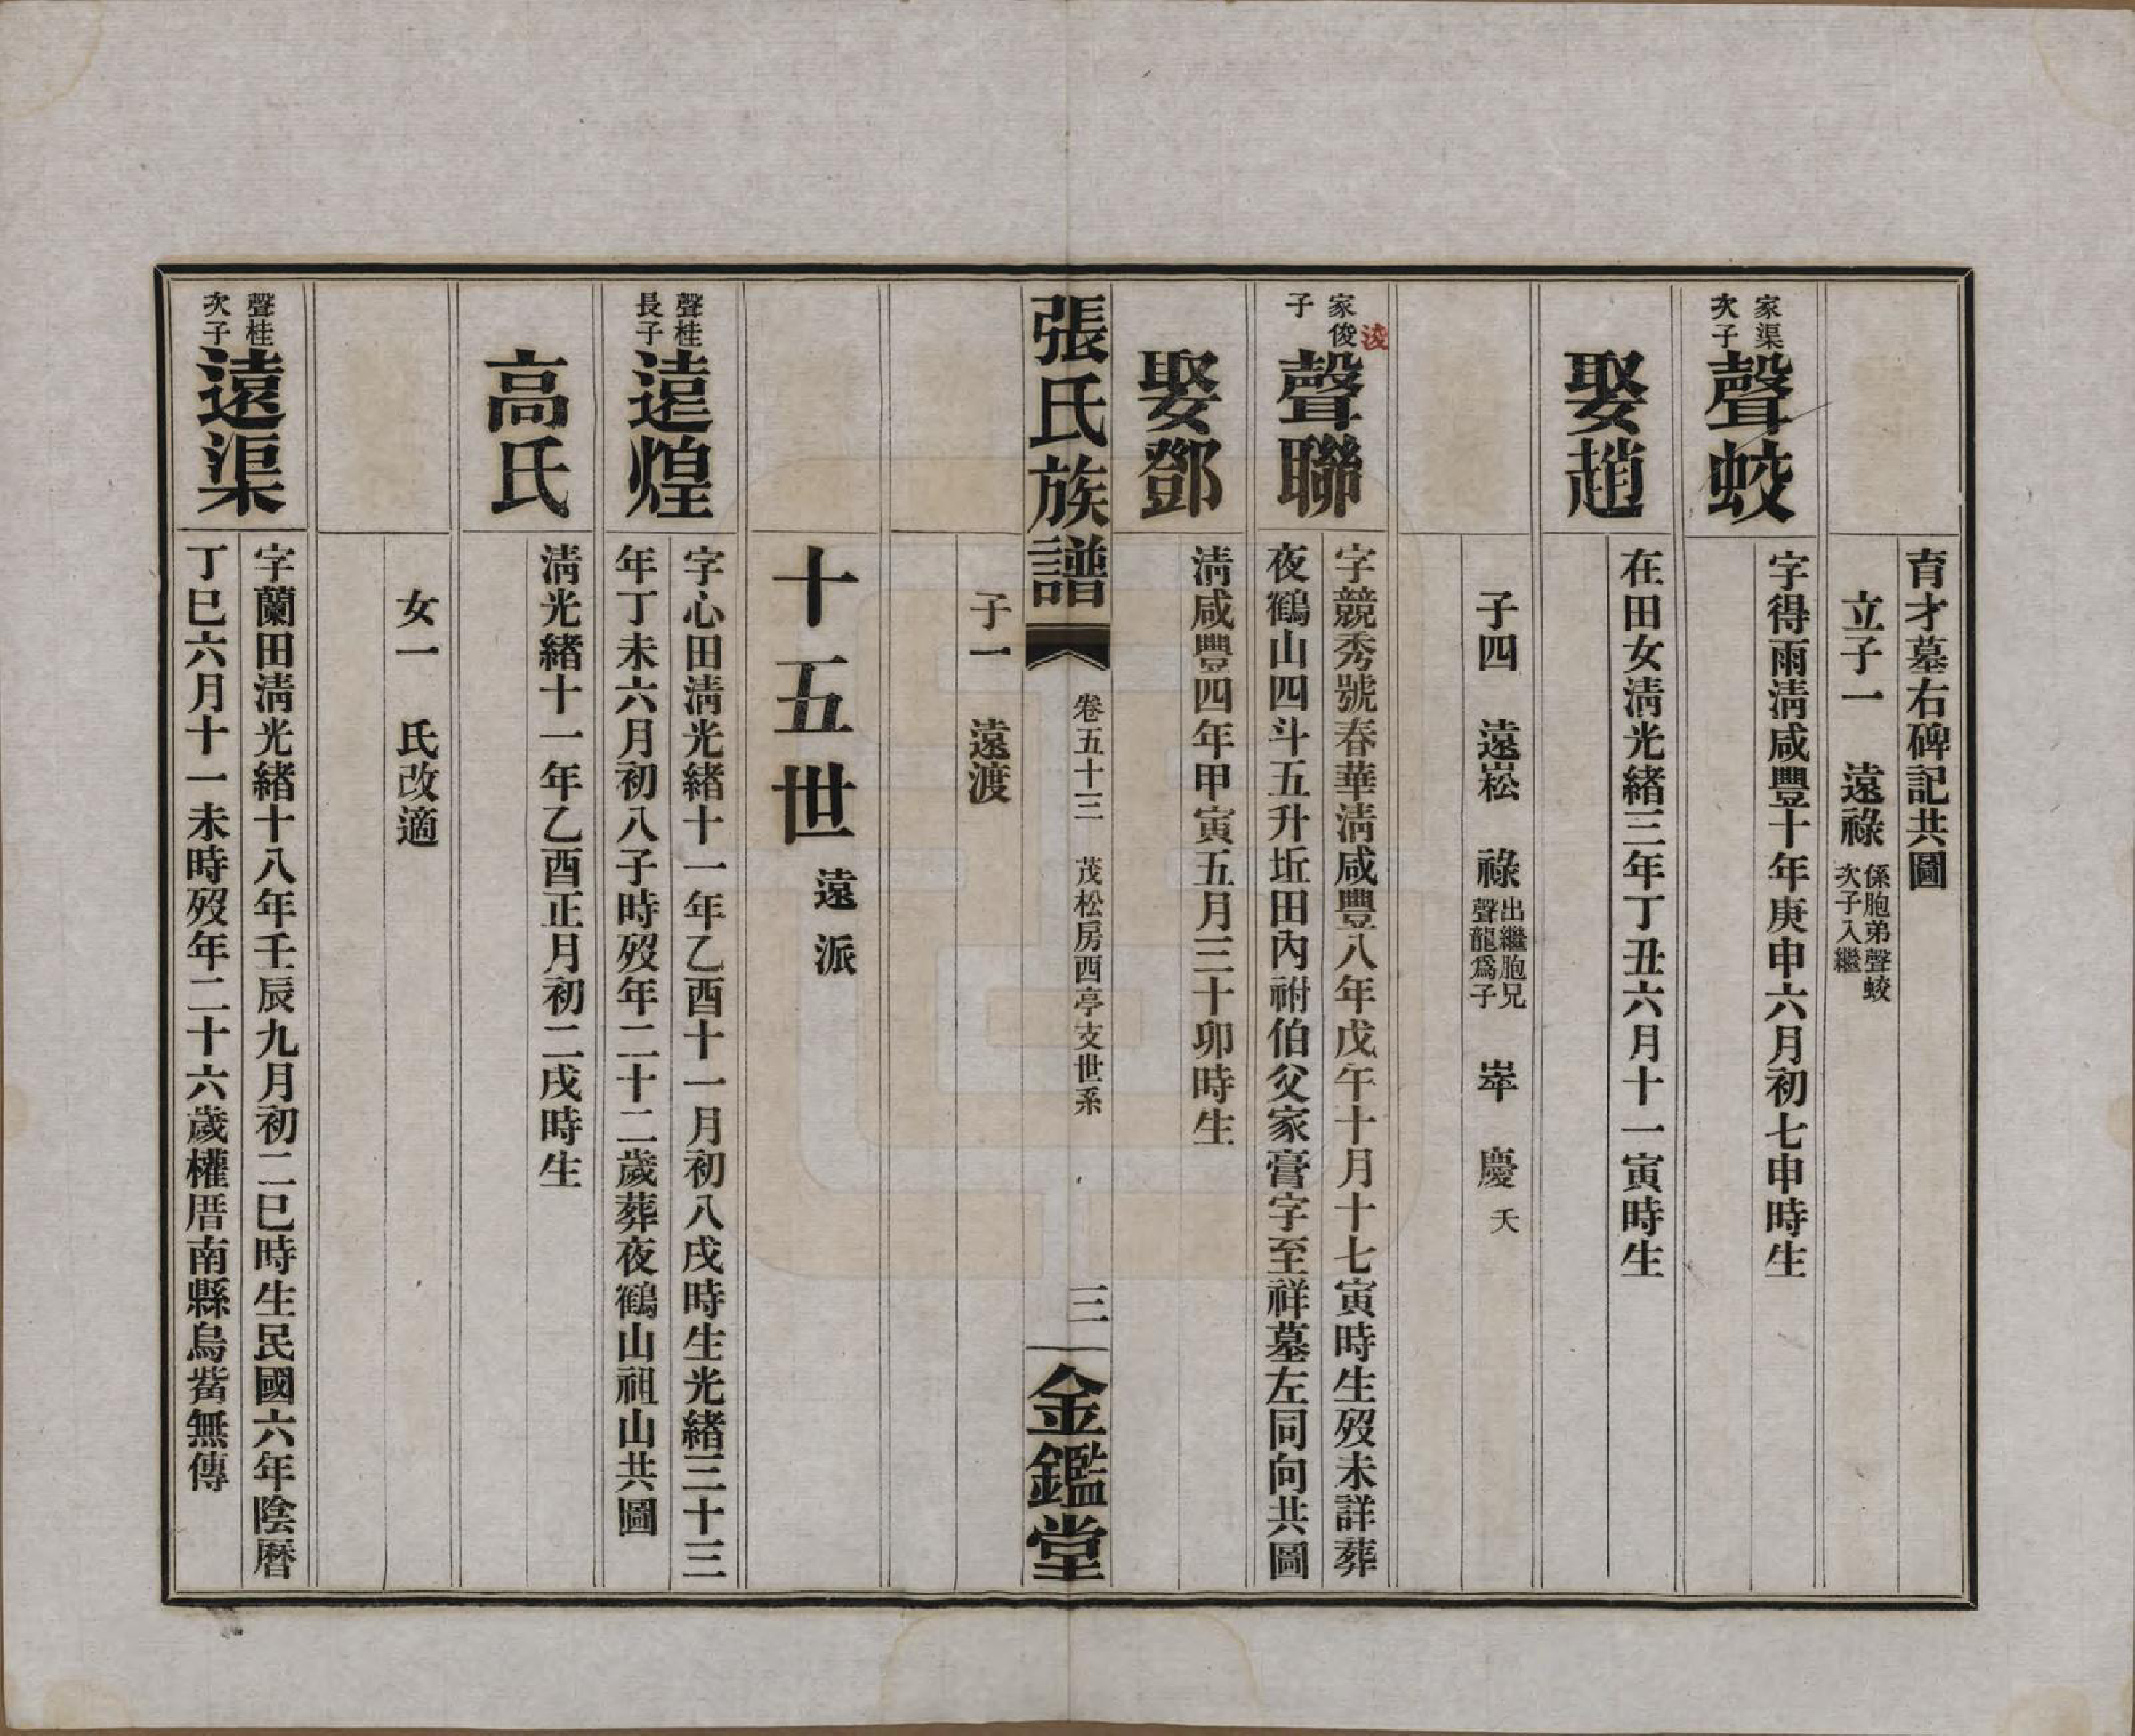 育才墓右碑記共圖
立子一　遠祿　係胞弟聲蛟
次子入繼
家渠
次子
聲蛟
字得雨淸咸豐十年庚申六月初七申時生
娶趙
在田女淸光緒三年丁丑六月十一寅時生
子四　遠崧　祿　出繼胞兄
聲龍爲子
崒　慶　夭
家俊
淩
子
聲聯
字競秀號春華淸咸豐八年戊午十月十七寅時生歿未詳葬
夜鶴山四斗五升坵田內祔伯父家膏字至祥墓左同向共圖
娶鄧
淸咸豐四年甲寅五月三十卯時生
張氏族譜
卷五十三　茂松房西亭支世系
三
金鑑堂
子一　遠渡
十五世　遠派
聲桂
長子
遠煌
字心田淸光緒十一年乙酉十一月初八戌時生光緒三十三
年丁未六月初八子時歿年二十二歲葬夜鶴山祖山共圖
高氏
淸光緒十一年乙酉正月初二戌時生
女一　氏改適
聲桂
次子
遠渠
字蘭田淸光緒十八年壬辰九月初二巳時生民國六年陰曆
丁巳六月十一未時歿年二十六歲權厝南縣烏觜無傳